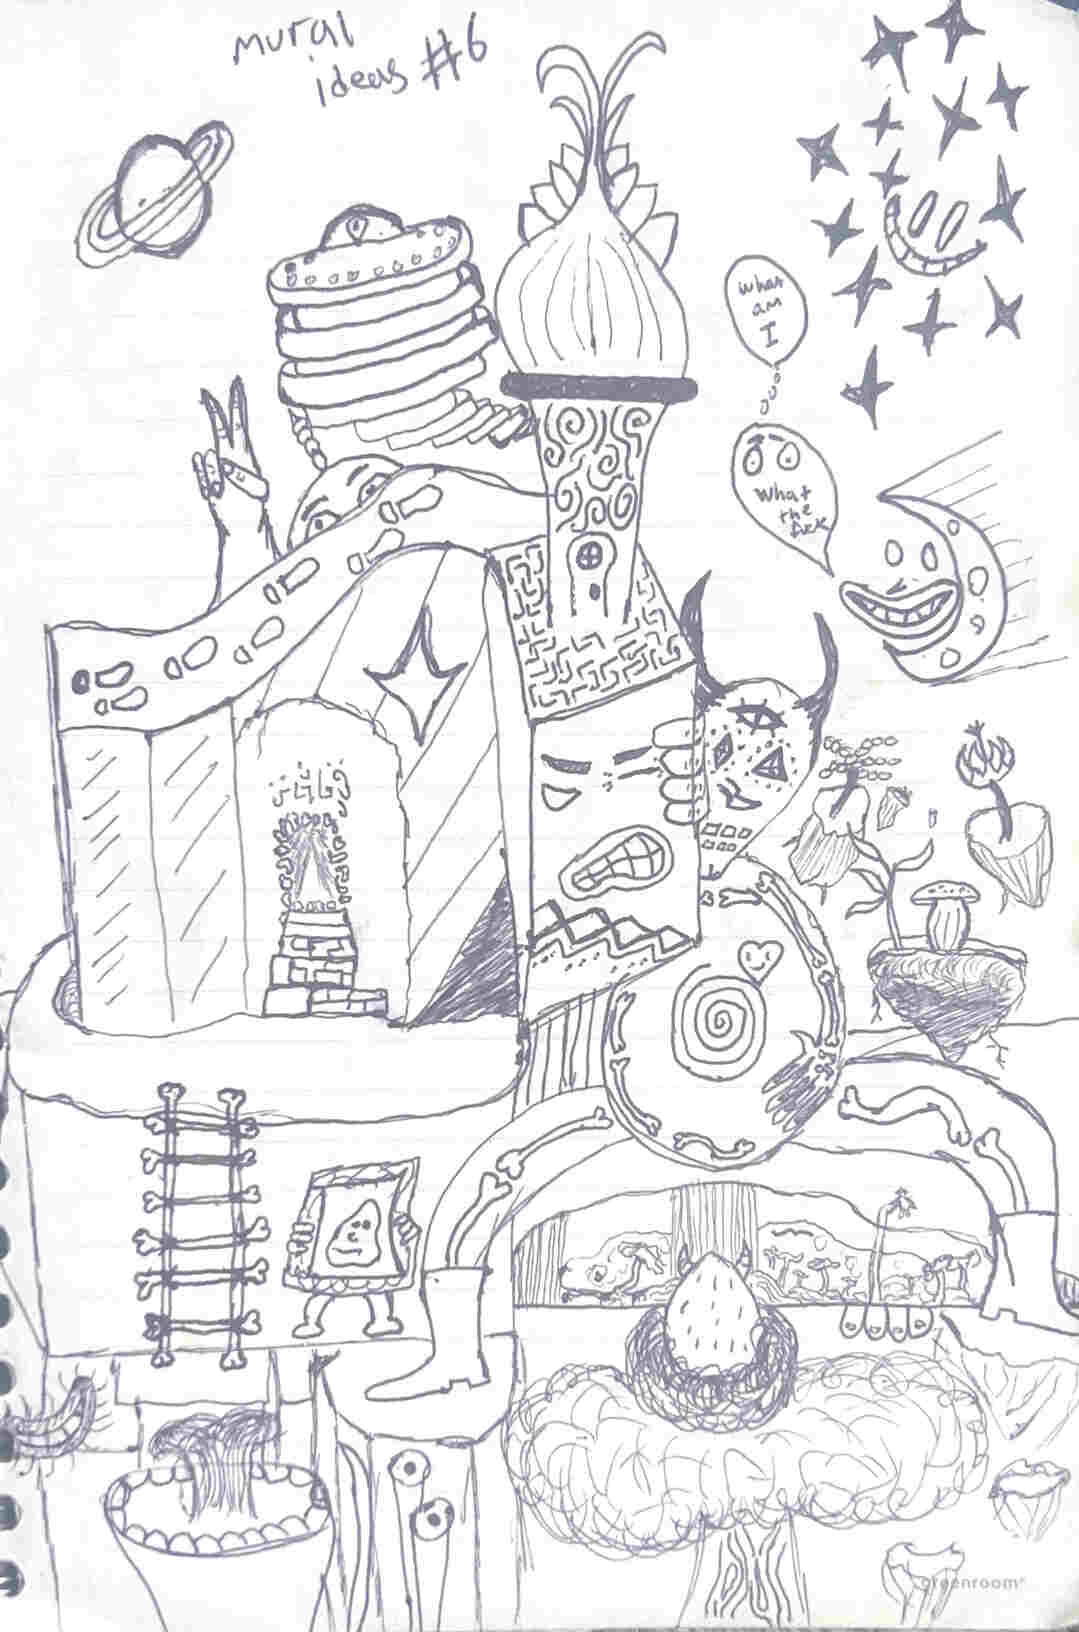 mural
ideas #6
what
am
I
what
the
fuck
greenroom®